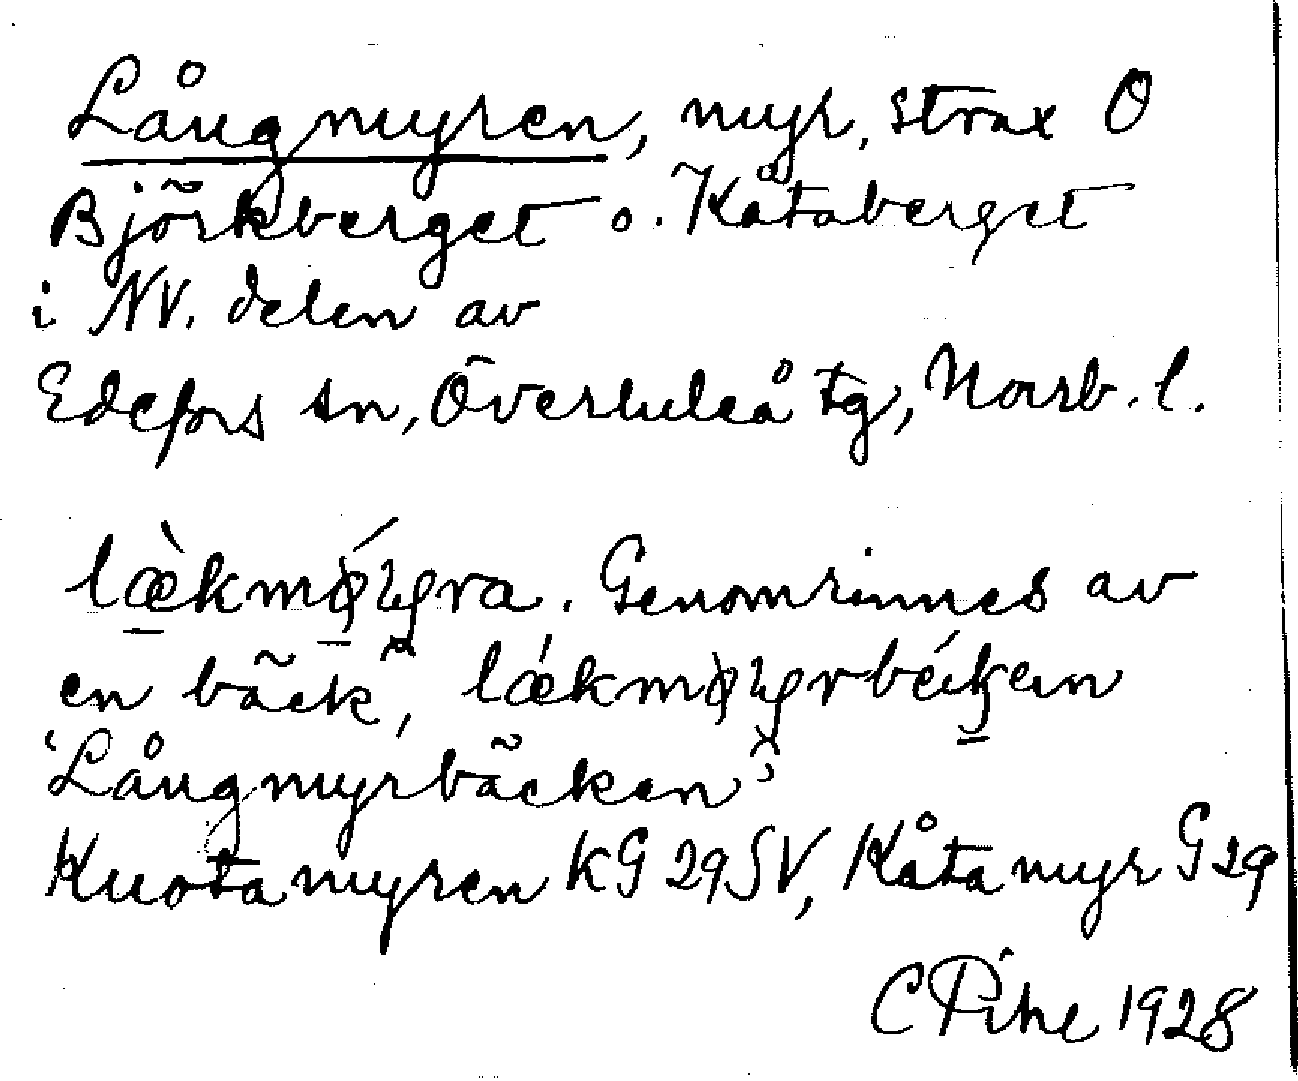 Långmyren, myr, strax O
Björkberget o. Kåtaberget
i NV. delen av
Edefors sn, Överluleå tg, Norrb. l.
Genomrinnes av
en bäck,
‘Långmyrbäcken’
Kuotamyren KG 29 SV, Kåtamyr G 29
C Pihl 1928